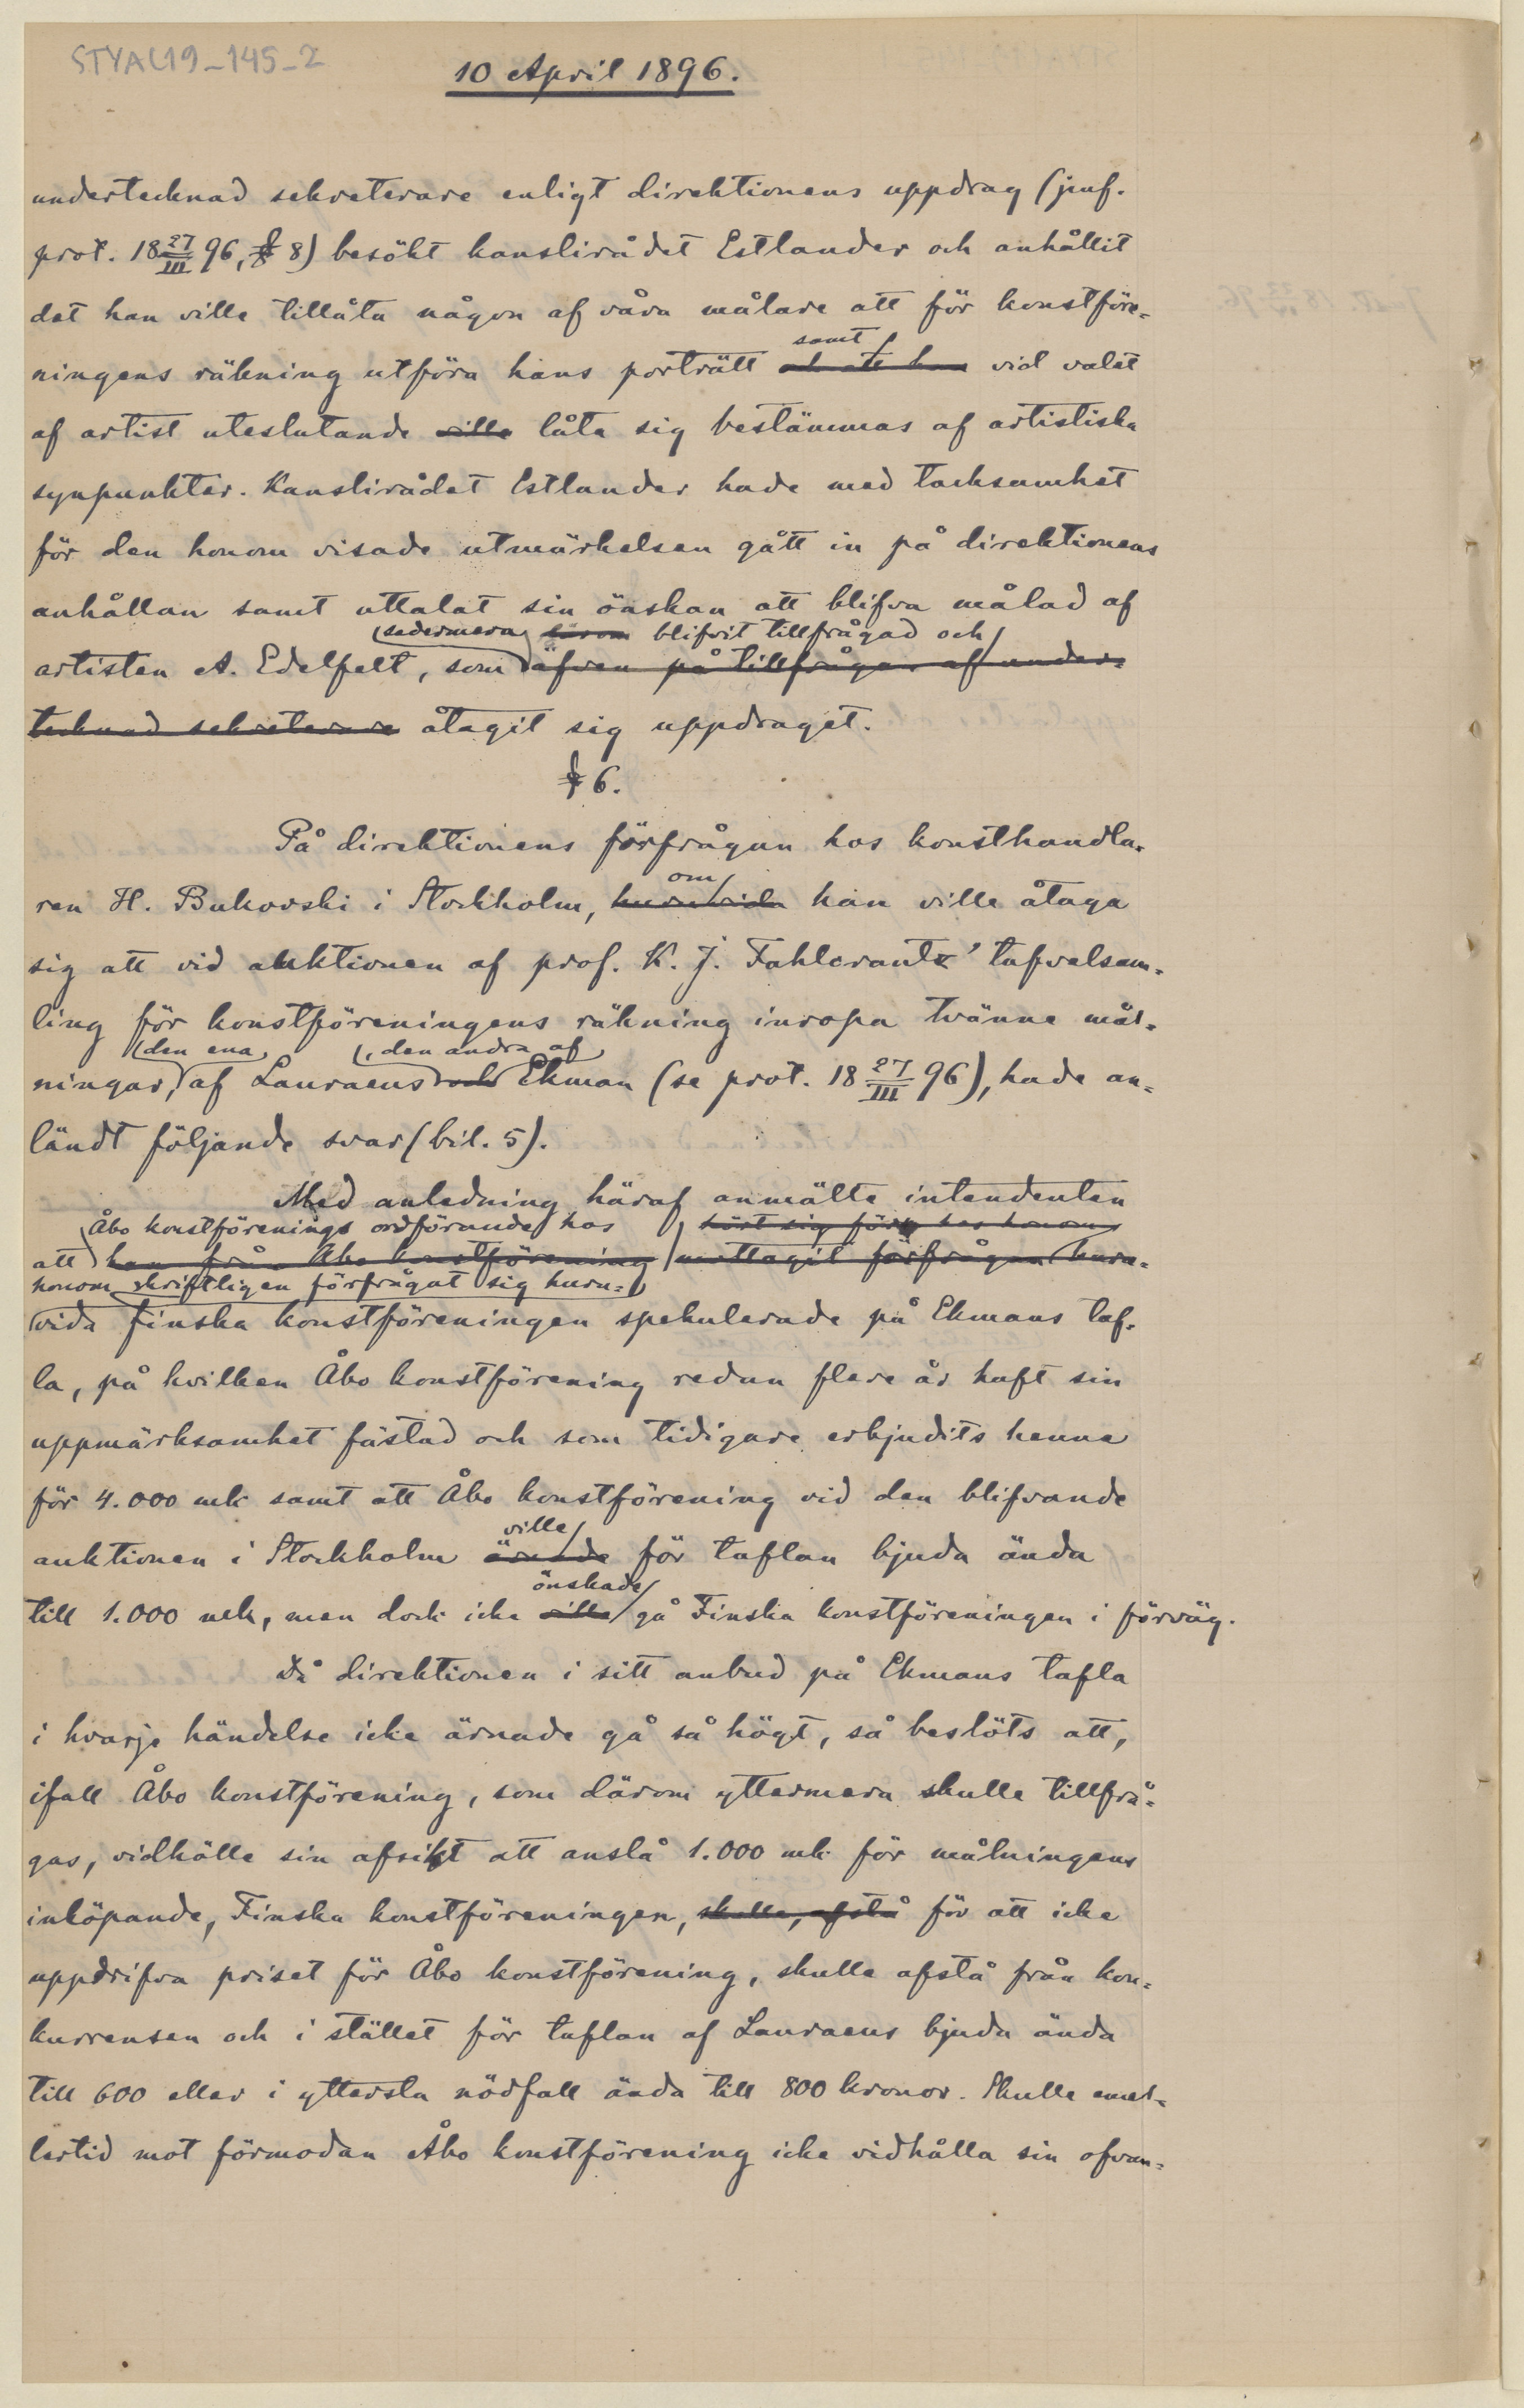 STYAL19_145_2
10 April 1896.
undertecknad sekreterare enligt direktionens uppdrag (jmf.
prot. 18 27/III 96, § 8) besökt kanslirådet Estlander och anhållit
det han ville tillåta någon af våra målare att för konstföre-
samt
ningens räkning utföra hans porträtt och att han vid valet
af artist uteslutande ville låta sig bestämmas af artistiska
synpunkter. Kanslirådet Estlander hade med tacksamhet
för den honom visade utmärkelsen gått in på direktionens
anhållan samt uttalat sin önskan att blifva målad af
sedermera härom blifvit tillfrågad och
artisten A. Edelfelt, som äfven på tillfrågan af under-
tecknad sekreterare åtagit sig uppdraget.
§ 6.
På direktionens förfrågan hos konsthandla-
om
ren H. Bukovski i Stockholm, huruvida han ville åtaga
sig att vid auktionen af prof. K. J. Fahlcrantz' tafvelsam-
ling för konstföreningens räkning inropa tvänne mål-
den ena , den andra af
ningar, af Lauraeus och Ekman (se prot. 18 27/III 96), hade an-
ländt följande svar (bil. 5).
Med anledning häraf anmälte intendenten
Åbo konstförenings ordförande hos hört sig för hos honom
att han från Åbo konstförening mottagit förfrågan huru-
honom skriftligen förfrågat sig huru-
vida Finska konstföreningen spekulerade på Ekmans taf-
la, på hvilken Åbo konstförening redan flere år haft sin
uppmärksamhet fästad och som tidigare erbjudits henne
för 4.000 mk samt att Åbo konstförening vid den blifvande
ville
auktionen i Stockholm ärnade för taflan bjuda ända
önskade
till 1.000 mk, men dock icke ville gå Finska konstföreningen i förväg.
Då direktionen i sitt anbud på Ekmans tafla
i hvarje händelse icke ärnade gå så högt, så beslöts att,
ifall Åbo konstförening, som därom yttermera skulle tillfrå-
gas, vidhölle sin afsikt att anslå 1.000 mk för målningens
inköpande, Finska konstföreningen, skulle, afstå för att icke
uppdrifva priset för Åbo konstförening, skulle afstå från kon-
kurrensen och i stället för taflan af Lauraeus bjuda ända
till 600 eller i yttersta nödfall ända till 800 kronor. Skulle emel-
lertid mot förmodan Åbo konstförening icke vidhålla sin ofvan-